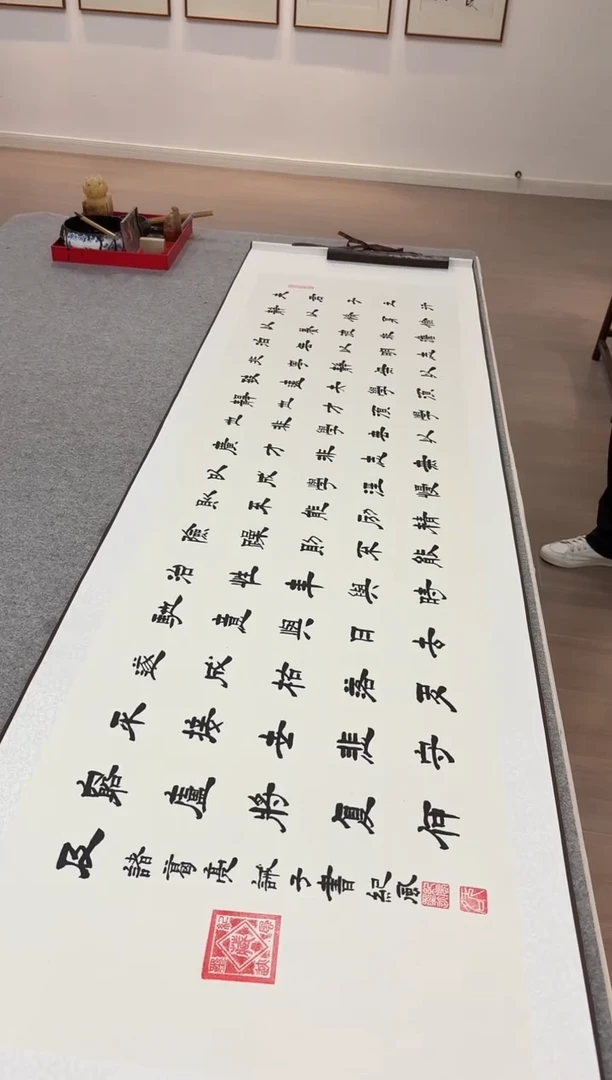 夫君子之行
靜以修身儉
以養德非澹
泊無以明志
非寧靜無以
致遠夫學須
靜也才須學
也非學無以
廣才非志無
以成學淫慢
則不能勵精
險躁則不能
治性年與時
馳意與日去
遂成枯落多
不接世悲守
窮廬將復何
及
諸葛亮誡子書紀風